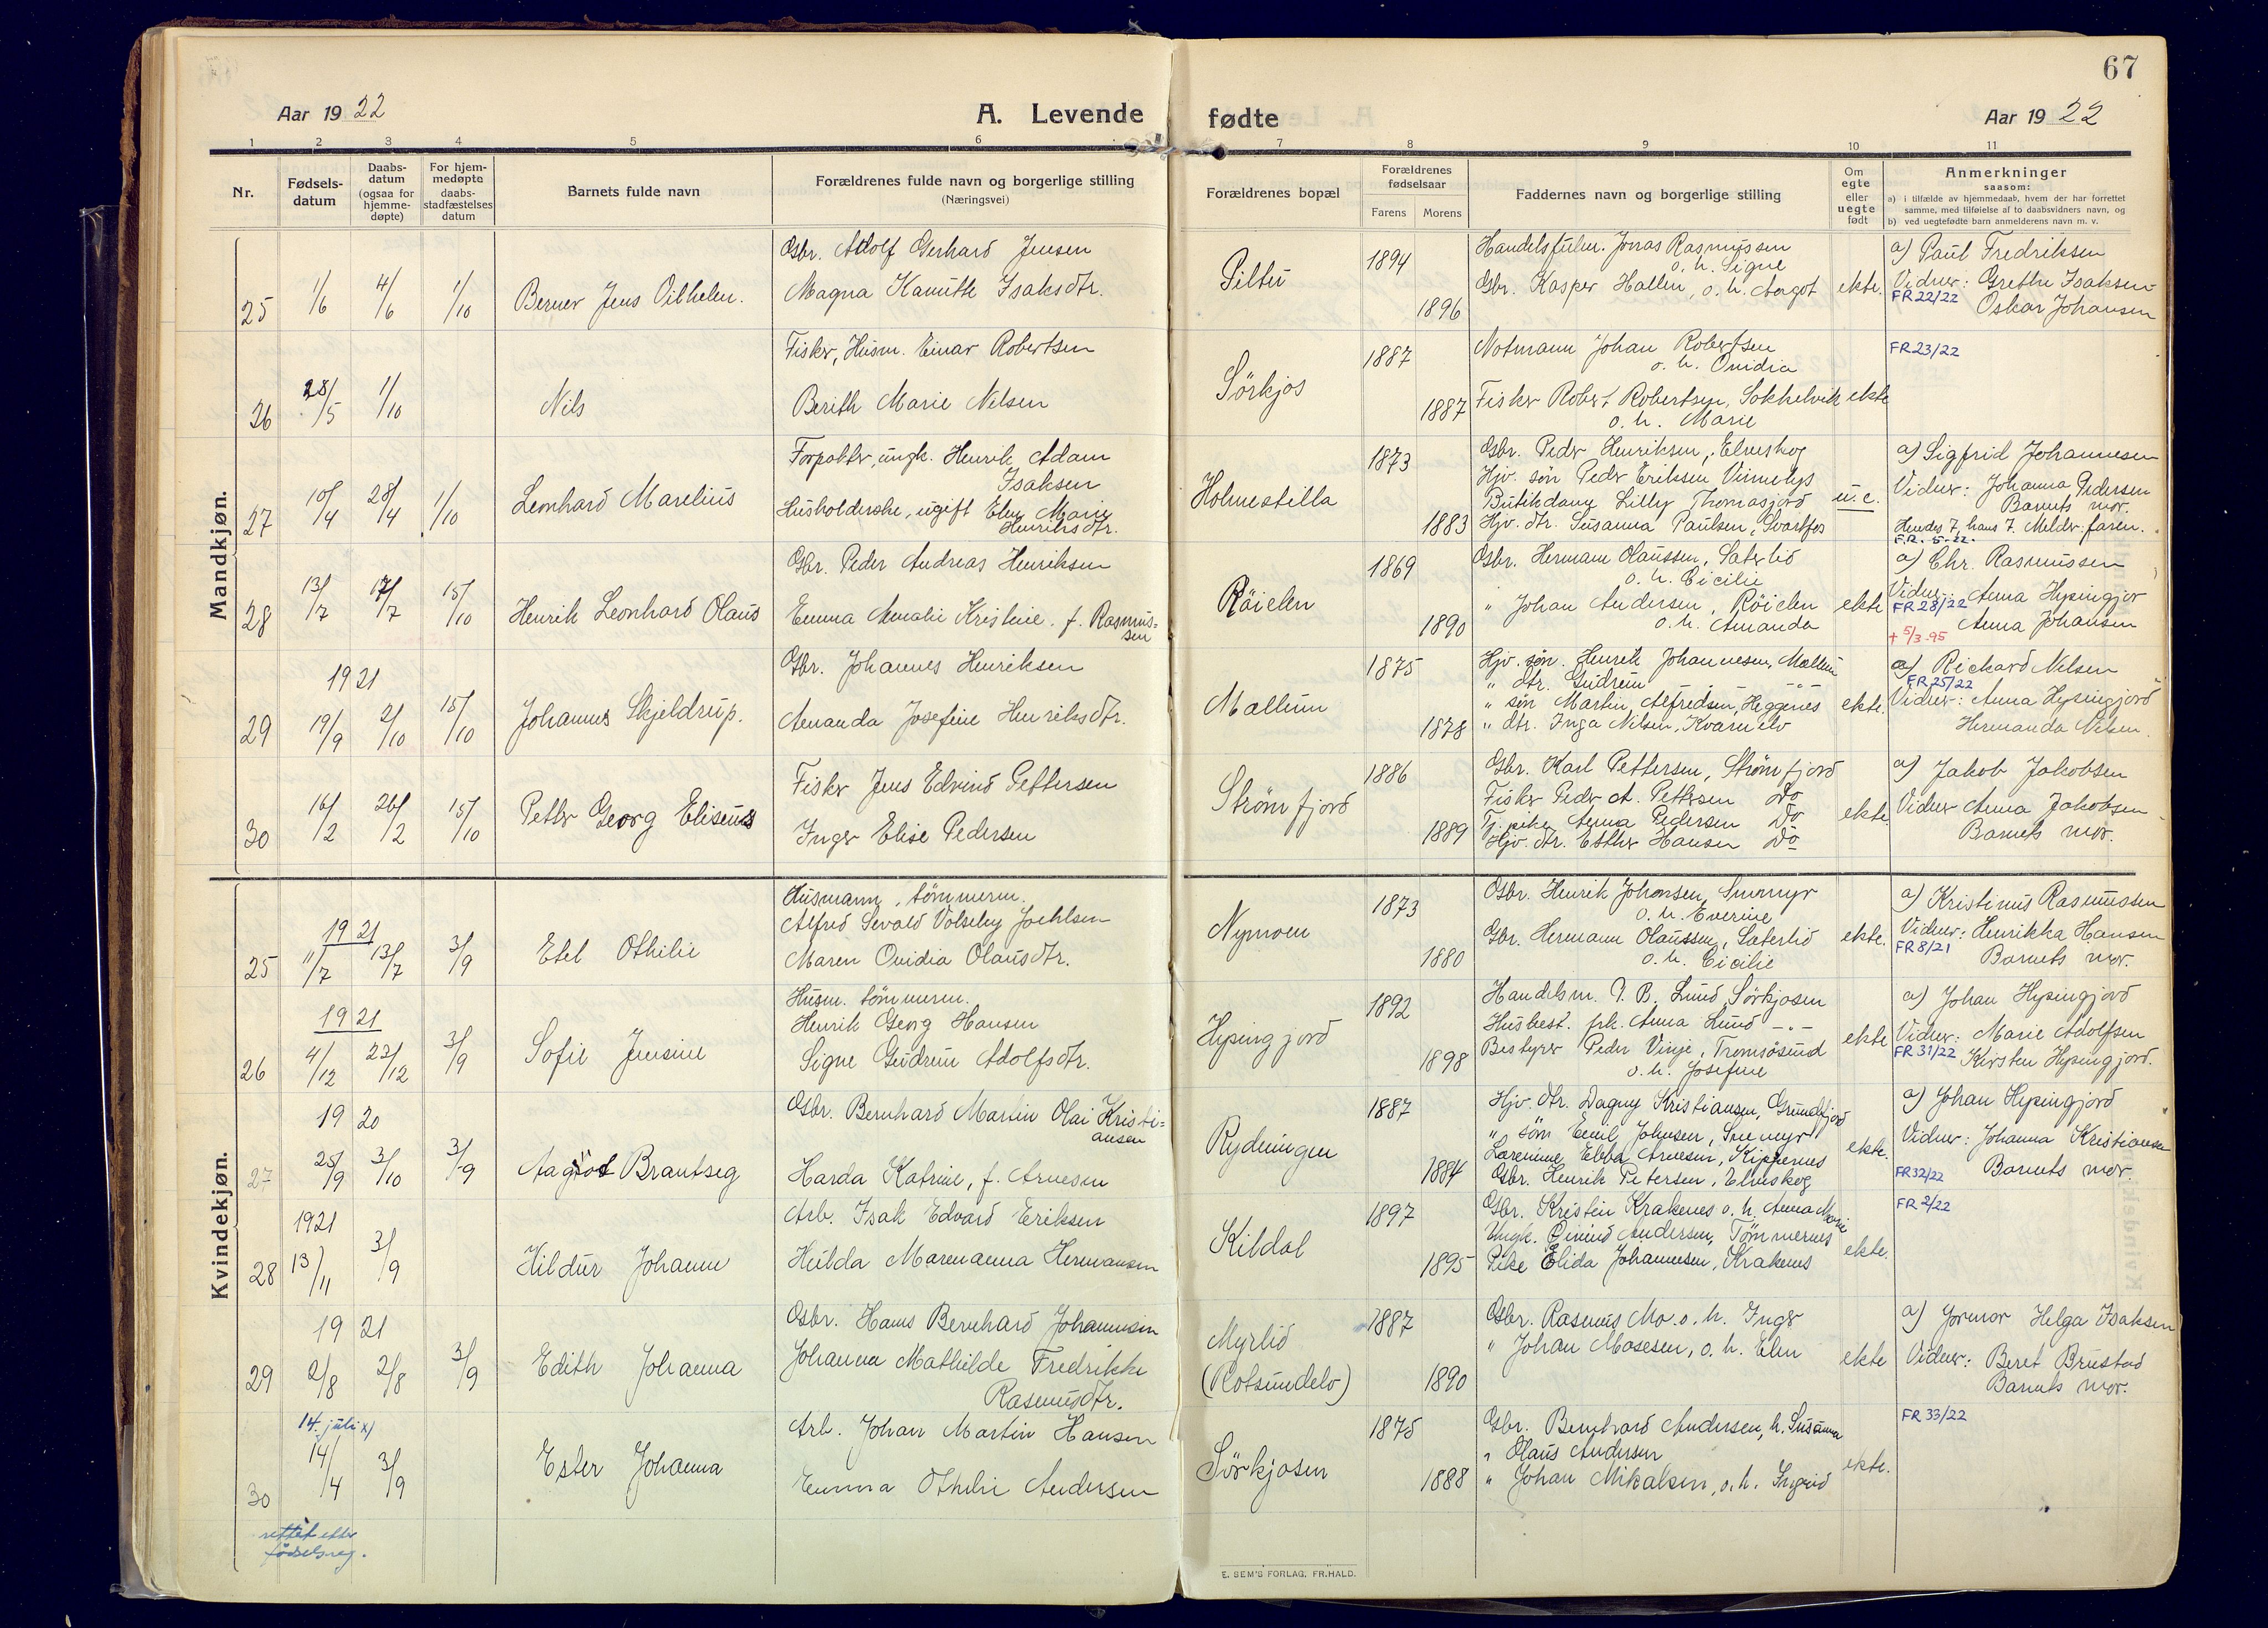 67
Aar 1922
A. Levende fødte
Aar 1922
1 2 3 4 5 6 7 8 9 10 11
Nr.
Fødsels-
datum
Daabs-
datum
(ogsaa for
hjemme-
døpte)
For hjem-
medøpte
daabs-
stadfæstelses
datum
Barnets fulde navn
Forældrenes fulde navn og borgerlige stilling
(Næringsvei)
Forældrenes bopæl
Forældrenes
fødselsaar
Farens Morens
Faddernes navn og borgerlige stilling
Om
egte
eller
uegte
født
Anmerkninger
saasom:
a) i tilfælde av hjemmedaab, hvem der har forrettet
samme, med tilføielse af to daabsvidners navn, og
b) ved uegtefødte barn anmelderens navn m. v.
Mandkjøn.
25 1/6 4/6 1/10 Berner Jens Vilhelm.
Gbr. Adolf Gerhard Jensen
Magna Kamitte Isaksdtr.
Piltu 1894 1896
Jonas Rasmussen
o. h. Signe
Gbr. Kasper Hallen, o. h. Aagot ekte.
a) Paul Fredriksen
Vidner: Grethe Isaksen
FR 22/22 Oskar Johansen
26 28/5 1/10 Nils
Fisker, Husm. Einar Robertsen
Berith Marie Nelsen
Sörkjos 1887 1887
Notmann Johan Robertsen
o. h. Ovidia
Fisker Robert Robertsen, Sokkelvik ekte
o. h. Marie
FR 23/22
27 10/4 28/4 1/10 Leonhard Marelius
Forpakter, ungk. Henrik Adam
Isaksen
Husholderske, ugift Elen Marie
Henriksdtr.
Holmestilla 1873 1883
Gbr. Peder Henriksen, Elveskog
Hjv. søn Peder Eriksen Vinnelys
Butikdame Lilly Thomasjord u. e.
Hjv. dtr. Susanna Paulsen, Svartfos
a) Sigfrid Johannesen
Vidner: Johanna Pedersen
Barnets mor.
Hendes 7, hans 7. Melder: faren.
F.R. 5-22.
28 13/7 17/7 15/10 Henrik Leonhard Olaus
Gbr. Peder Andreas Henriksen
Emma Amalie Kristine. f. Rasmus=
sen
Röielen 1869 1890
Gbr. Hermann Olaussen, Sæterlid
o. h. Cicilie
" Johan Andersen, Röielen ekte
o. h. Amanda
a) Chr. Rasmussen
Vidner: Anna Hysingjor
FR 28/22 Anna Johansen
+ 5/3-95
29 1921 19/9 2/10 15/10 Johannes Skjeldrup.
Gbr. Johannes Henriksen
Amanda Josefine Henriksdtr.
Mallum 1875 1878
Hjv. søn. Henrik Johannesen, Mallum
" dtr. Gudrun -"-
" søn Martin Alfredsen, Heggenes ekte.
" dtr. Inga Nilsen, Kvænelv
a) Rickard Nelsen
FR 25/22
Vidner: Anna Hysingjord
Hermanda Nilsen.
30 16/2 26/2 15/10 Petter Georg Eliseus
Fisker Jens Edvind Pettersen
Inger Elise Pedersen
Strömfjord 1886 1889
Gbr. Karl Pettersen, Strömfjord
Fisker Peder A. Pettersen Do
Tj. pike Anna Pedersen Do ekte.
Hjv. dtr. Esther Hansen Do
a) Jakob Jakobsen
Vidner Anna Jakobsen
Barnets mor.
Kvindekjøn.
25 1921 11/7 13/7 3/9 Etel Othilie
Husmann, tömmerm.
Alfred Sevald Volseby Joehlsen
Maren Ovidia Olausdtr.
Nymoen 1873 1880
Gbr. Henrik Johansen, Snemyr
o. h. Everine
Gbr. Hermann Olaussen, Sæterlid ekte.
o. h. Cicilie
a) Kristinus Rasmussen
Vidner: Henrikka Hansen
FR 8/21 Barnets mor.
26 1921 4/12 23/12 3/9 Sofie Jensine
Husm. tömmerm.
Henrik Georg Hansen
Signe Gudrun Adolfsdtr.
Hysingjord 1892 1898
Handelsm. J. B. Lund, Sörkjosen
Husbest. frk. Anna Lund -"-
Bestyrer Peder Vinje, Tromsösund ekte
o. h. Josefine
a) Johan Hysingjord
Vidner: Marie Adolfsen
FR 31/22 Kirsten Hysingjord.
27 1920 25/9 3/10 3/9 Aagot Brantseg
Gbr. Bernhard Martin Olai Kristi=
ansen
Harda Katrine, f. Arnesen
Rydningen 1887 1884
Hjv. dtr. Dagny Kristiansen, Grundfjord
" søn Emil Johnsen, Snemyr
Lærerinne Ebba Arnesen, Kippernes ekte.
Gbr. Henrik Petersen, Elveskog
a) Johan Hysingjord
Vidner: Johanna Kristiansen
FR 32/22 Barnets mor.
28 1921 13/11 3/9 Hildur Johanne
Arb. Isak Edvard Eriksen
Hulda Marenanna Hermansen
Kildal 1897 1895
Gbr. Kristin Krakenes o. h. Anna Marie
Ungk. Eivind Andersen, Tömmernes
Pike Elida Johannesen, Krakenes ekte.
FR 2/22
29 1921 2/8 2/8 3/9 Edith Johanna
Gbr. Hans Bernhard Johannesen
Johanna Mathilde Fredrikke
Rasmusdtr.
Myrlid
(Rotsundelv) 1887 1890
Gbr. Rasmus Mo. o. h. Inger
" Johan Mosesen, o. h. Elen ekte
a) Jormor Helga Isaksen
Vidner: Beret Brustad
Barnets mor.
30 14. juli x)
14/4 3/9 Ester Johanna
Arb. Johan Martin Hansen
Emma Othilie Andersen
Sörkjosen 1875 1888
Gbr. Bernhard Andersen, h. Susanna
" Olaus Andersen
" Johan Mikalsen, o. h. Ingrid ekte.
FR 33/22
rettet etter
fødselsreg.
E. SEM'S FORLAG, FR.HALD.